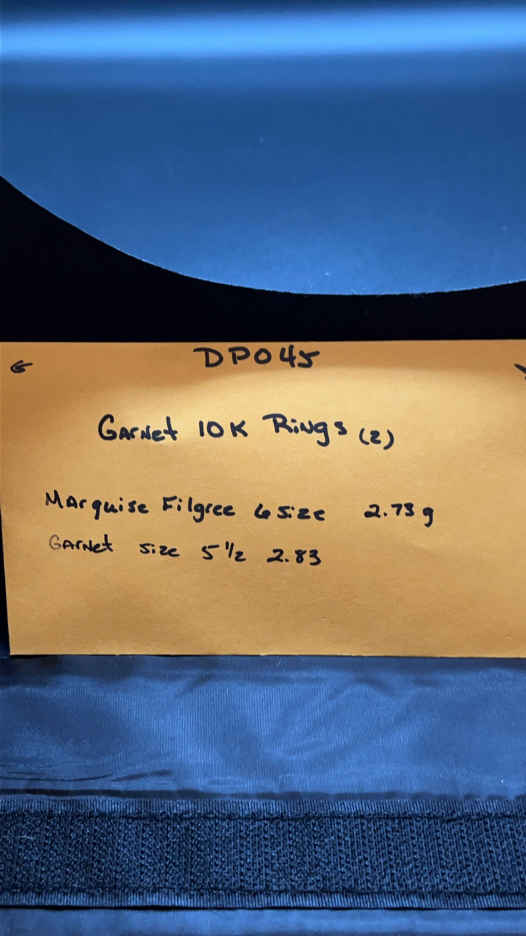 DP045
Garnet 10K Rings (2)
Marquise Filgree 6 size 2.73 g
Garnet size 5 1/2 2.83